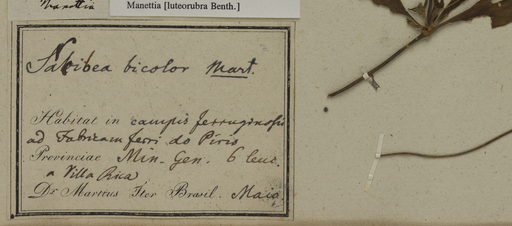 Manettia
Manettia [luteorubra Benth.]
Sabicea bicolor Mart.
Habitat in campis ferruginosis
ad Fabricam ferri do Pires
Provinciae Min. Gen. 6 leuc.
a Villa Rica
Dr Martius Iter Brasil. Maio.